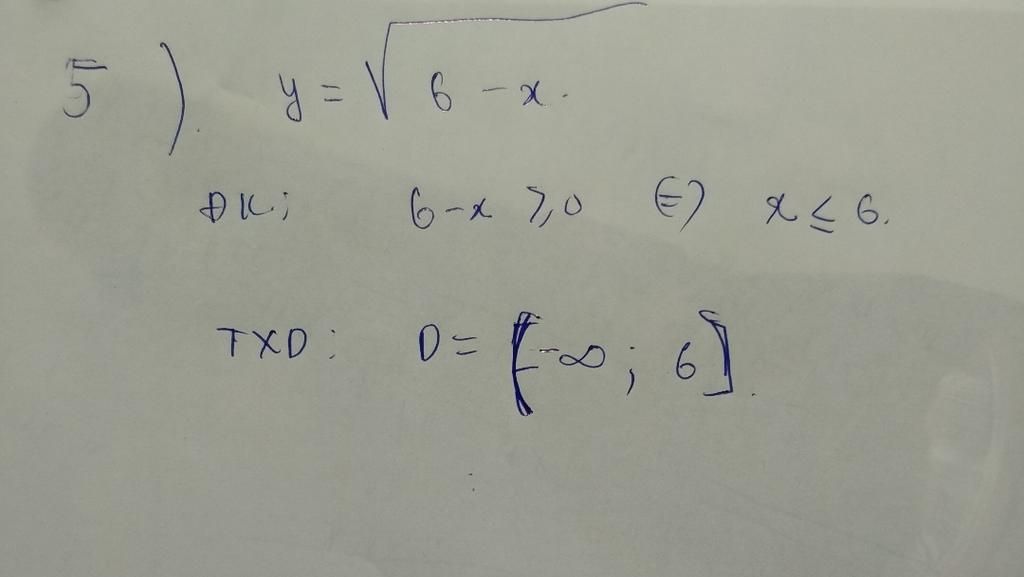 5). y = √6 - x.
ĐK: 6 - x ≥ 0 ⇔ x ≤ 6.
TXD: D = [-∞; 6].